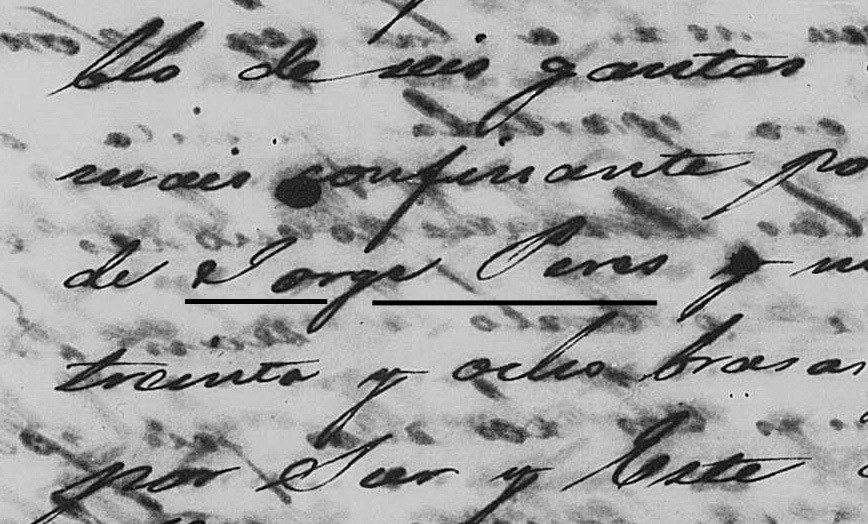 blo de seis gantas
mais confinante po
de Jorge Peres y
treinta y ocho brasas
por Sur y Este